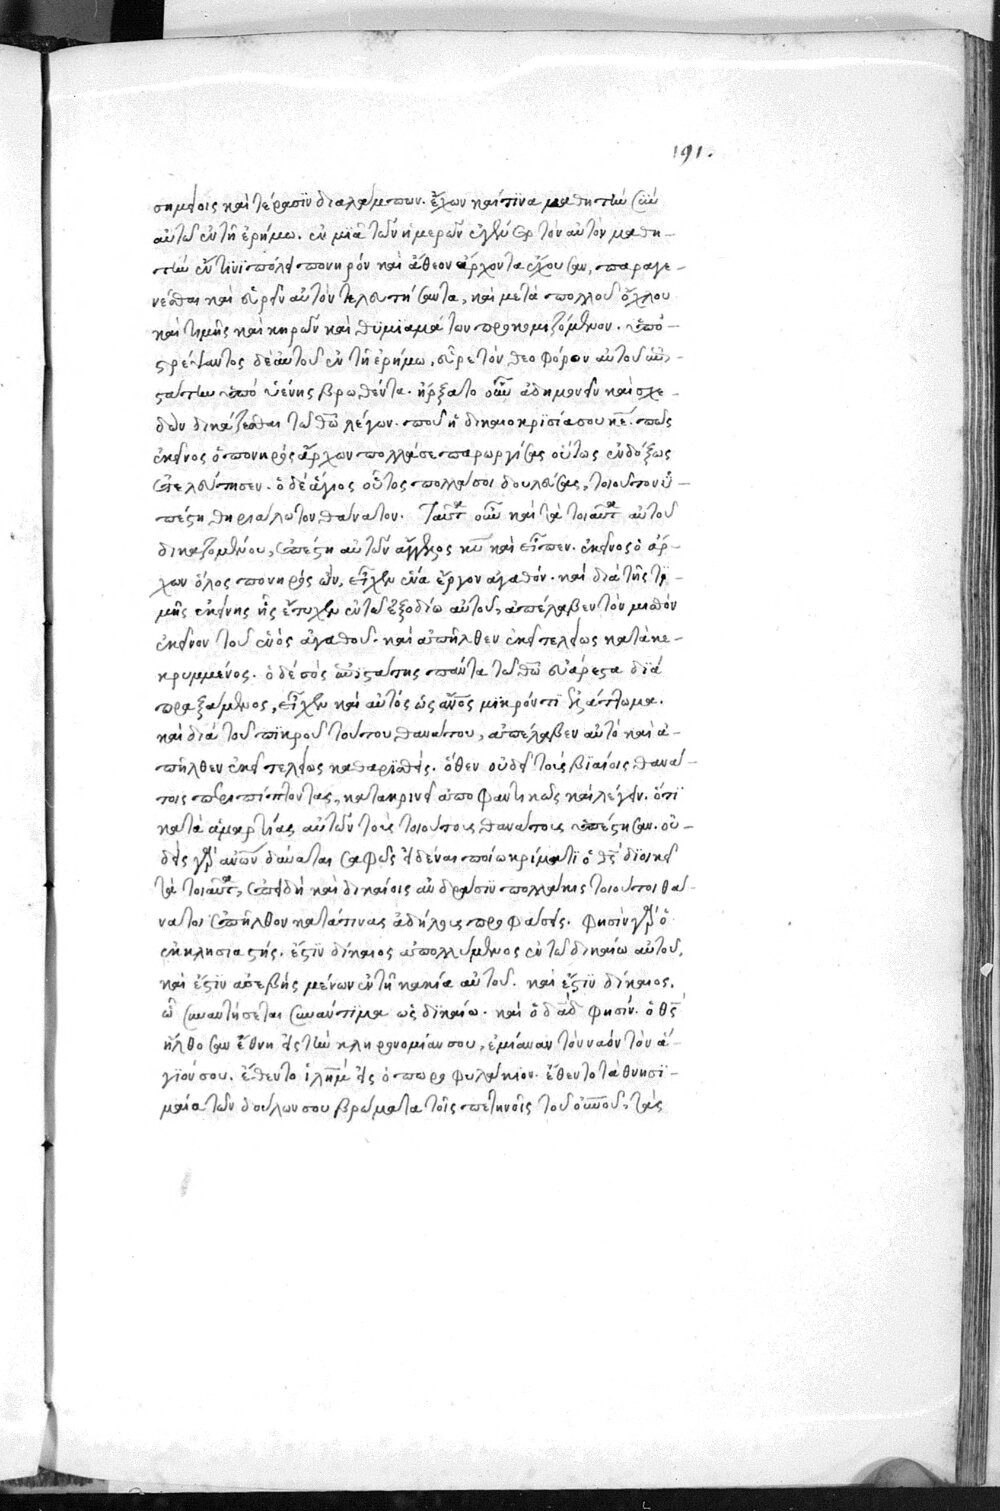 191.
σημείοις καὶ τέρασϊν διαλάμπων. ἔχων καὶ τϊνα μαθητὴν σὺν
αὐτῶ ἐν τῆ ἐρήμω. ἐν μϊᾶ τῶν ἡμερῶν ἐγένετο τὸν αὐτὸν μαθη-
τὴν ἔν τινϊ πόλει πονηρόν καὶ ἄθεον ἄρχοντα ἐχούσαν, παραγε-
νέσθαι καὶ εὑρεῖν αὐτὸν τελευτήσαντα, καὶ μετὰ πολλοῦ ὄχλου
καὶ τιμῆς καὶ κηρῶν καὶ θυμϊαμάτων προκομιζόμενον. ὑπο-
στρέψαντος δὲ αὐτοῦ ἐν τῆ ἐρήμω, εὗρε τὸν θεοφόρον αὐτοῦ ἐπι-
στάτην ὑπὸ ὑένης βρωθέντα. ἤρξατο οὖν ἀδημονεῖν καὶ σχε-
δὸν δικάζεσθαι τῶ θῶ λέγων. ποῦ ἡ δικαιοκρϊσία σου κε. πῶς
ἐκεῖνος ὁ πονηρός ἄρχων πολλά σε παρωργίσας οὕτως ἐνδόξως
ἐτελεύτησεν. ὁ δὲ ἅγιος οὗτος πολλά σοι δουλεύσας, τοιοῦτον ὑ-
πέστη θηριάλωτον θάνατον. Ταῦτα οὖν καὶ τὰ τοιαῦτα αὐτοῦ
δικαζομένου, ἐπέστη αὐτῶ ἄγγελος κυ καὶ εἶπεν. ἐκεῖνος ὁ ἄρ-
χων ὅλος πονηρός ὢν, εἶχεν ἕνα ἔργον ἀγαθόν. καὶ διὰ τῆς τι-
μῆς ἐκείνης ἧς ἔτυχεν ἐν τῶ ἐξοδίω αὐτοῦ, ἀπέλαβεν τὸν μισθόν
ἐκεῖνον τοῦ ἑνός ἀγαθοῦ. καὶ ἀπῆλθεν ἐκεῖ τελείως κατάκε-
κρυμμένος. ὁ δὲ σός ἐπϊστάτης πάντα τῶ θῶ εὐάρεστα διὰ
πραξάμενος, εἶχεν καὶ αὐτός ὡς ἄνος μϊκρόν τϊ ἐξάπτωμα.
καὶ διὰ τοῦ πϊκροῦ τούτου θανάτου, ἀπέλαβεν αὐτό καὶ ἀ-
πῆλθεν ἐκεῖ τελείως καθαρϊσθείς. ὅθεν οὐδεὶς τοὺς βϊαίοις θανά-
τοις περιπίπτοντας, κατακρίνει ἀποφαντικῶς καὶ λέγειν. ὅτϊ
κατὰ ἁμαρτίας αὐτῶν τοὺς τοιούτους θανάτους ὑπέστησαν. οὐ-
δεὶς γὰρ ἀνων δύναται σαφῶς εἰδέναι ποίω κρίματϊ ὁ θς δϊοικεῖ
τὰ τοιαῦτα, ἐπειδὴ καὶ δικαίοις ἀνδράσϊν πολλάκις τοιοῦτοι θά-
νατοι ἐπῆλθον κατά τινας ἀδήλους προφάσεις. φησὶν γὰρ ὁ
ἐκκλησιαστής. ἔστϊν δίκαιος ἀπολλύμενος ἐν τῶ δικαίω αὐτοῦ,
καὶ ἔστϊν ἀσεβής μένων ἐν τῆ κακία αὐτοῦ. καὶ ἔστϊν δίκαιος,
ὧ συναντήσεται συνάντϊμα ὡς δϊκαίω. καὶ ὁ δαδ φησίν. ὁ θς
ἤλθοσαν ἔθνη εἰς τὴν κληρονομίαν σου, ἐμίαναν τὸν ναόν τὸν ἅ-
γϊόν σου. ἔθεντο ἱλημ εἰς ὀπωροφυλάκιον. ἔθεντο τὰ θνησϊ-
μαῖα τῶν δούλων σου βρώματα τοῖς πετηνοῖς τοῦ οὐνοῦ, τὰς